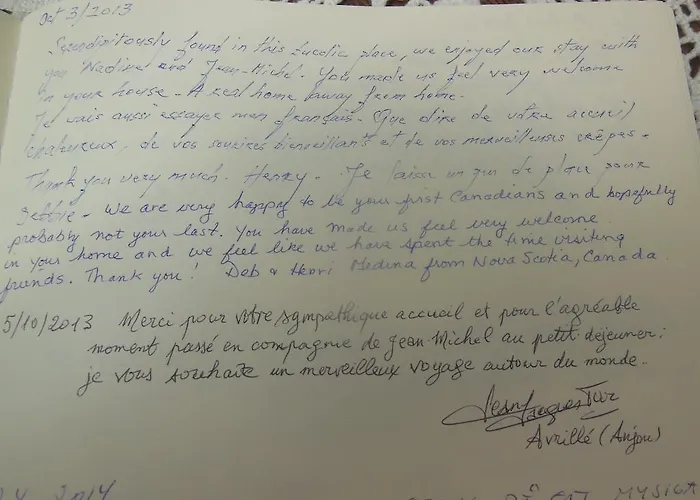 Oct 3/2013
Serendipitously found in this bucolic place, we enjoyed our stay with
you Nadine and Jean-Michel. You made us feel very welcome
in your house - A real home away from home.
Je vais aussi essayer mon français. Que dire de votre accueil
chaleureux, de vos sourires bienveillants et de vos merveilleuses crêpes.
Thank you very much. Henry - Je laisse un peu de place pour
Debbie - We are very happy to be your first Canadians and hopefully
probably not your last. You have made us feel very welcome
in your home and we feel like we have spent the time visiting
friends. Thank you! Deb & Henri Medina from Nova Scotia, Canada.
5/10/2013 Merci pour votre sympathique accueil et pour l'agréable
moment passé en compagnie de Jean-Michel au petit-déjeuner.
je vous souhaite un merveilleux voyage autour du monde.
Jean Jacques
Avrillé (Anjou)